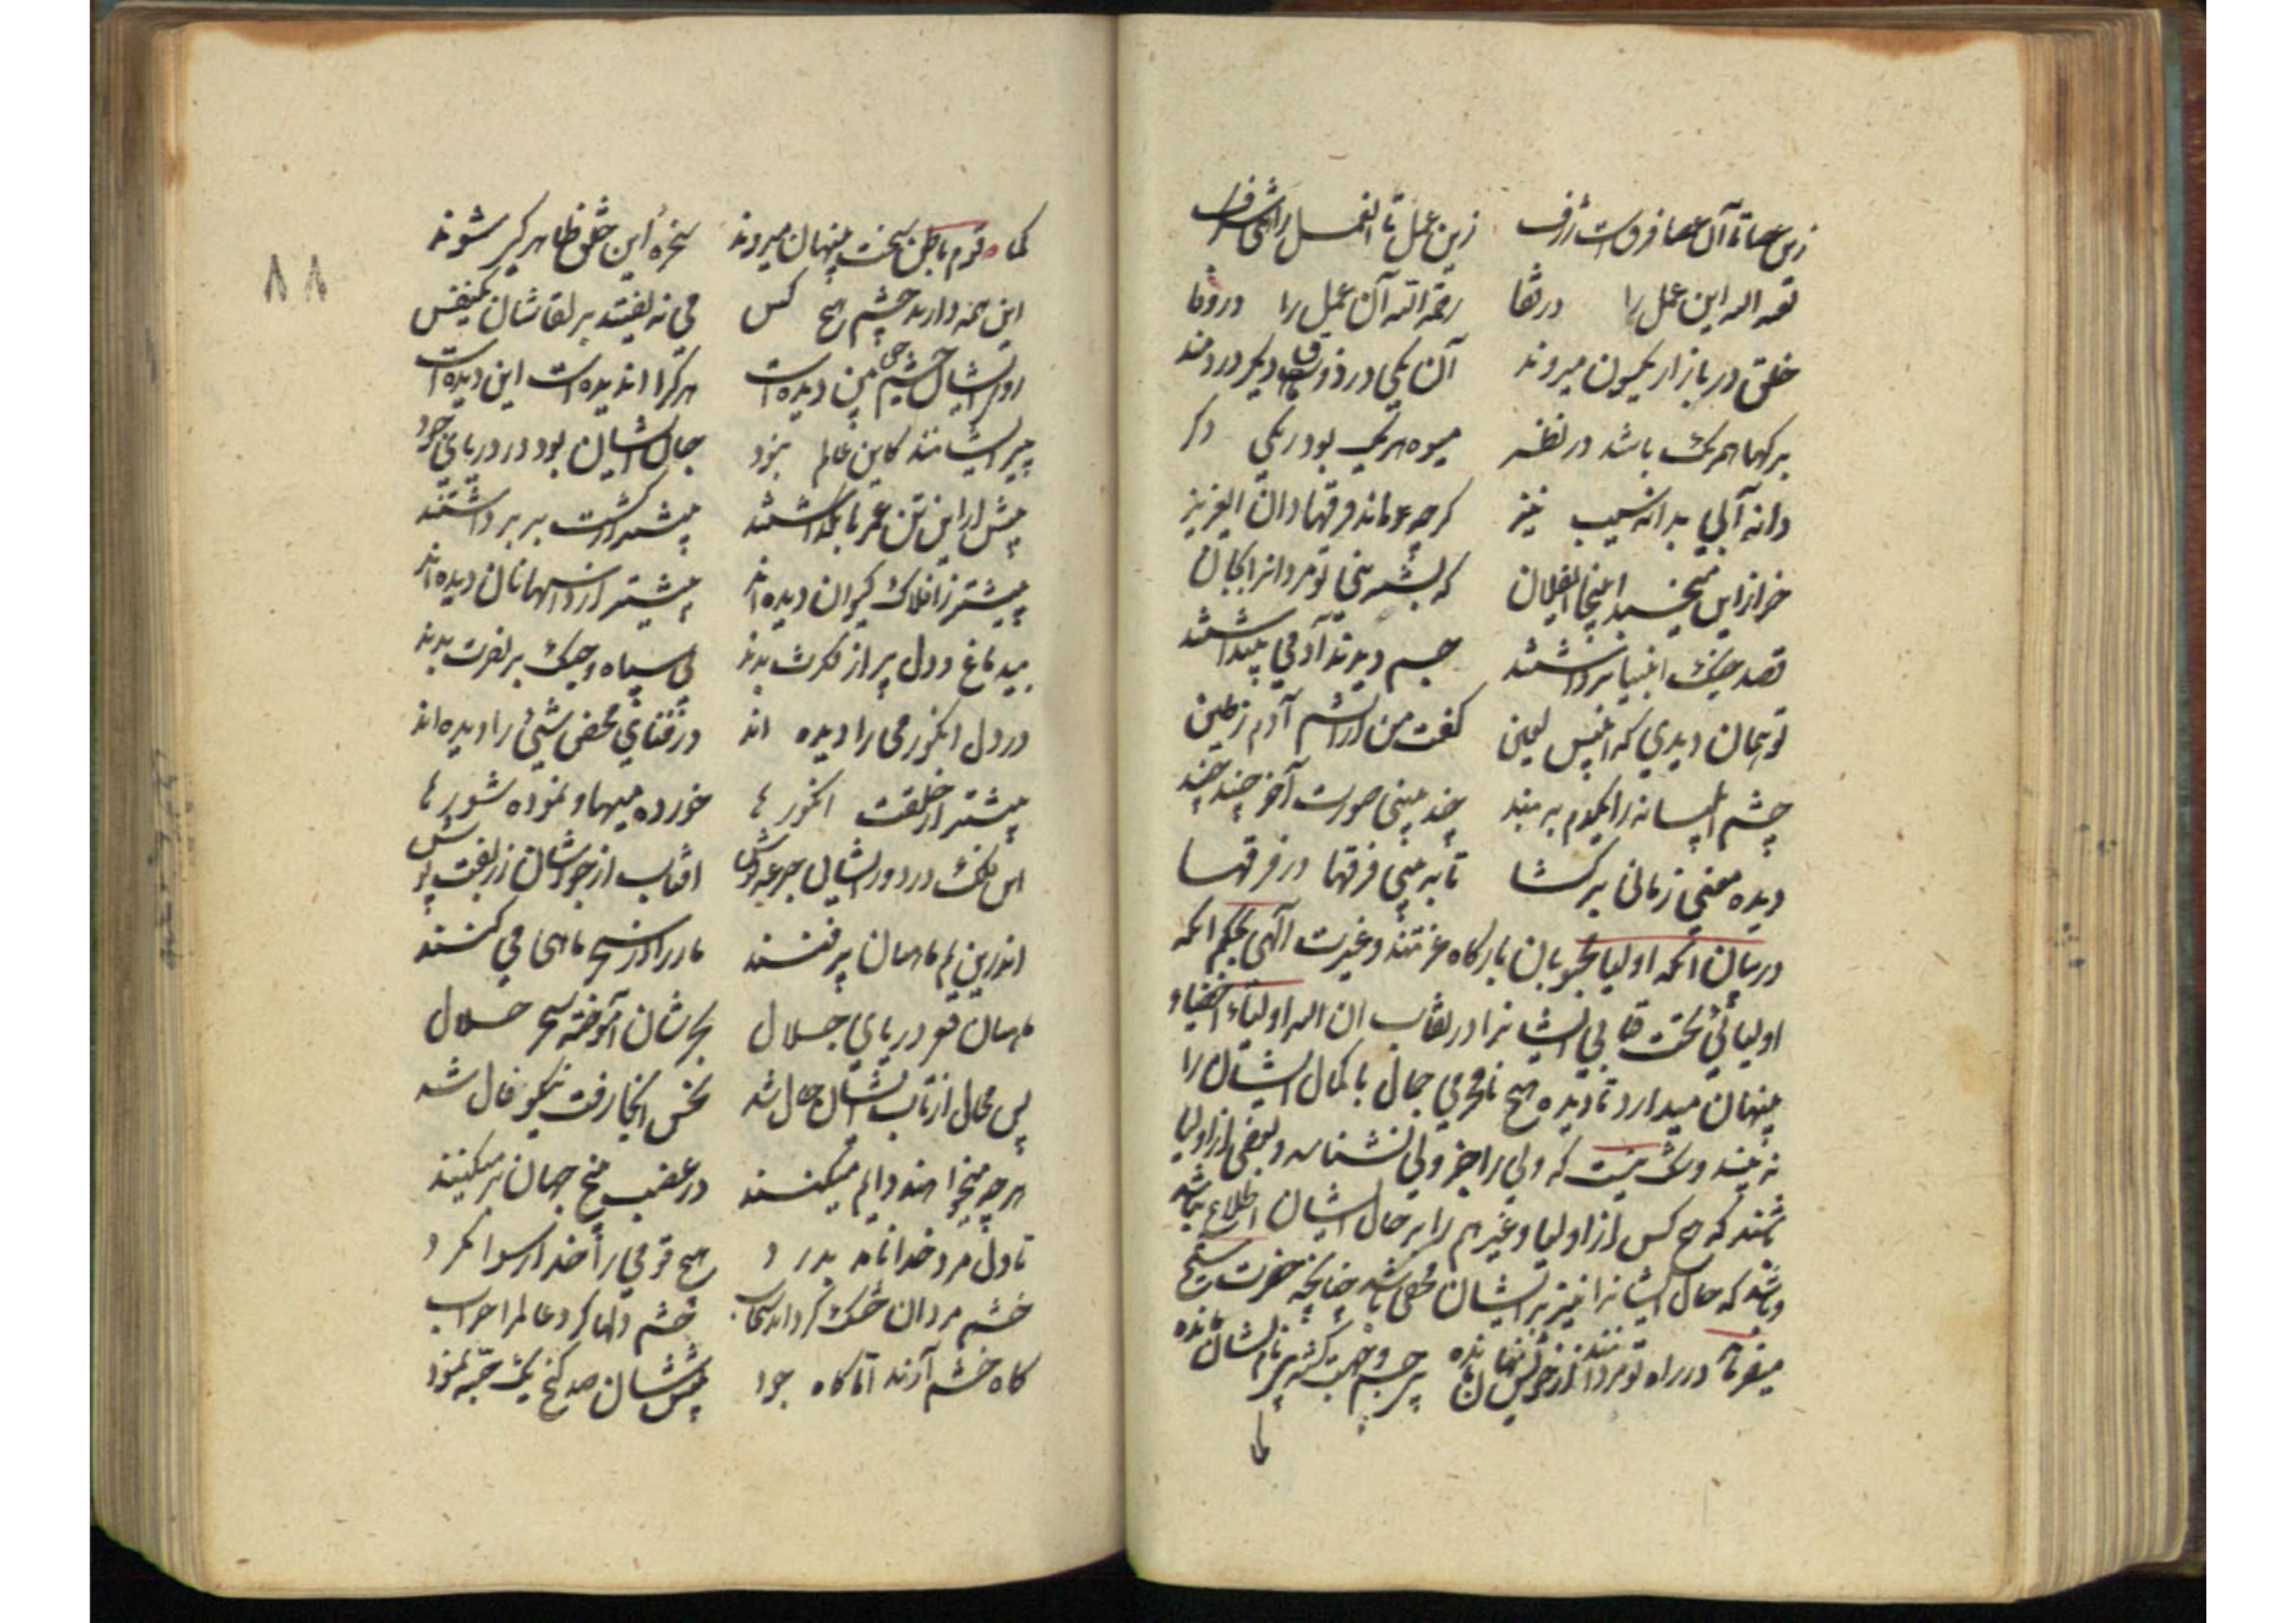 زین عصا تا آن عصا فرقیست ژرف زین عمل تا آن عمل راهی شگرف
لعنه الله این عمل را در قفا رحمة الله آن عمل را در وفا
خلق در بازار یکسون میروند آن یکی در ذوق دیگر دردمند
برگها همرنگ باشد در نظر میوه هر یک بود رنگی دگر
دانه آبی بدانه سیب نیز گرچه ماند فرقها دان ای عزیز
خر ازاین میخسبد اینجا ای فلان که بشر بینی تو مردانرا بجان
قصد جنگ انبیا برداشتند جسم دیدند آدمی پنداشتند
تو همان دیدی که ابلیس لعین گفت من از آتشم آدم ز طین
چشم ابلیسانه را یکدم ببند چند بینی صورت آخر چند چند
دیده معنی زمانی برگشا تا ببینی فرقها در فرقها
در بیان انکه اولیا محبوبان بارگاه عزتند وغیرت آلهی بحکم انکه
اولیائی تحت قبابی ایشانرا در نقاب ان الله اولیاء اخفیاء
پنهان میدارد تا دیده هیچ نامحرمی جمال با کمال ایشان را
نه بیند وشک نیست که ولی را جز ولی نشناسد وبعضی از اولیا
که هیچ کس از اولیا وغیرهم را بر حال ایشان اطلاع نباشد
وباشد که حال ایشانرا نیز بر ایشان مخفی باشد چنانچه حضرت شیخ
میفرماید در راه تو مردانند از خویش نهان مانده بی جسم وجهت گشته بی نام ونشان مانده
کما
کما قوم باطن سخت پنهان میروند سخره این خلق ظاهر کی شوند
این همه دارند چشم هیچ کس می نه یفتد بر لقاشان یکنفس
روی ایشان چشم حق بین دیده است هر کرا اندیده است این دیده است
پیر ایشانند کاین عالم نبود جان ایشان بود در دریای جود
پیش ازاین تن عمرها بگذاشتند پیشتر از کشت بر برداشتند
پیشتر ز افلاک کیوان دیده اند پیشتر از دانها نان دیده اند
بیدماغ ودل پر از فکرت بدند بی سپاه وجنگ بر نصرت بدند
در دل انگور می را دیده اند در فنای محض شیئ را دیده اند
پیشتر از خلقت انگورها خورده میها ونموده شورها
این فلک در دور ایشان جرعه نوش افتاب از جودشان زربفت پوش
اندرین یم ماهیان پر فنند مار را از سحر ماهی می کنند
ماهیان قعر دریای جلال بحرشان آموخته سحر حلال
پس محال از تاب ایشان حال شد نحس آنجا رفت نیکو فال شد
هر چه میخواهند دایم میکنند در غضب بیخ جهان بر میکنند
تا دل مرد خدا نامد بدرد هیچ قومی را خدا رسوا نکرد
خشم مردان خشک گرداند سحاب خشم دلها کرد عالم را خراب
گاه خشم آرند اما گاه جود پیش شان صد گنج یک حبه نمود
۸۸